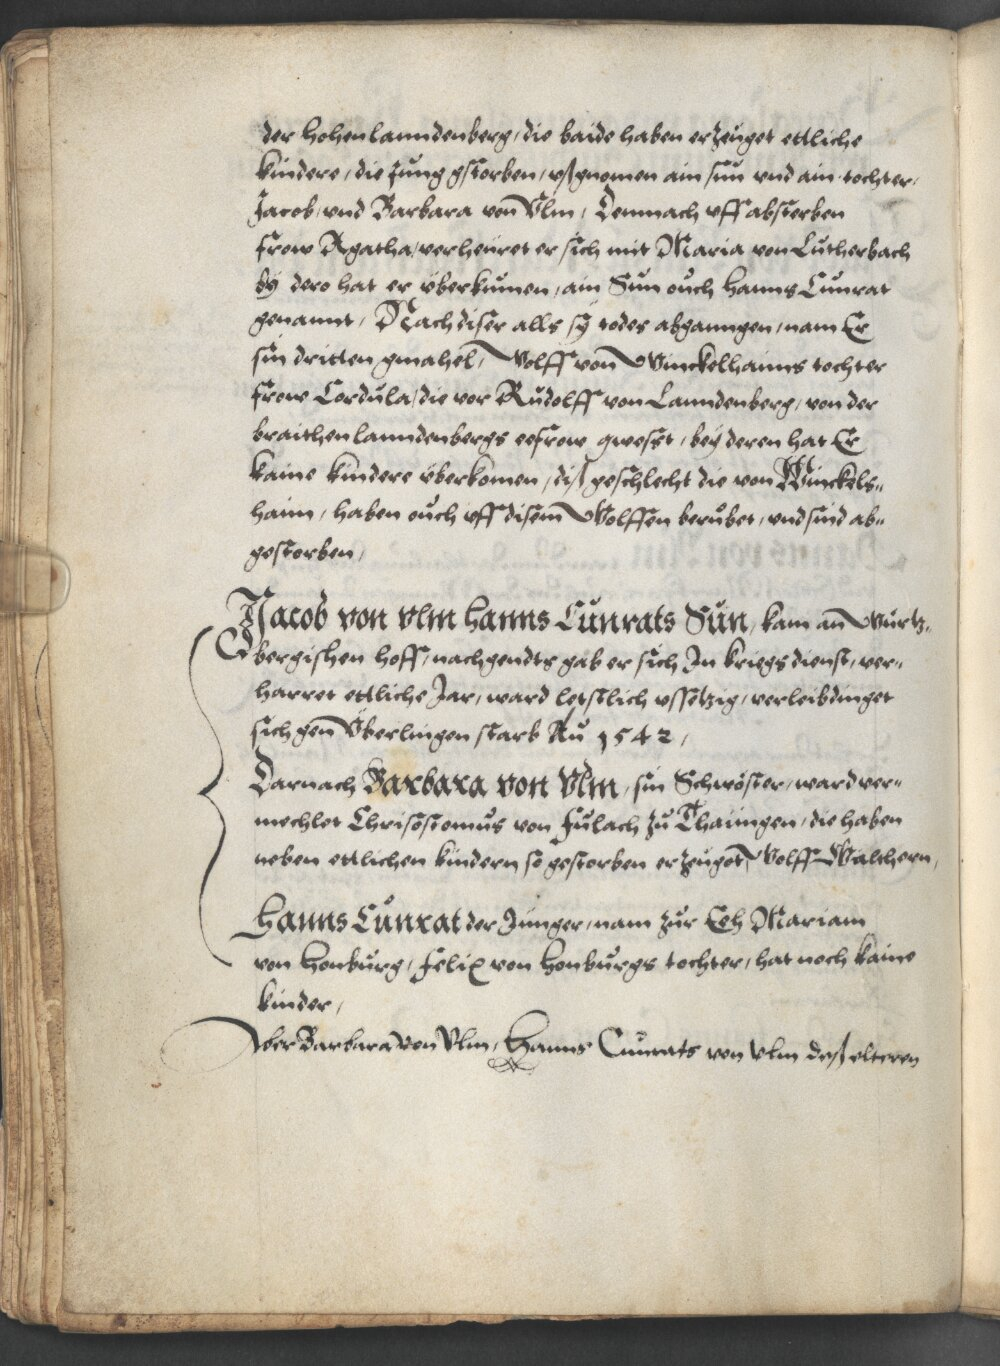 der hohenlanndenberg, die baide haben erzeuget ettliche
kindere, die Jung gstorben, vßgnomen ain sun vnd ain tochter,
Jacob, vnd Barbara von Vlm, Demnach vff absterben
frow Agatha, verheuret er sich mit Maria von Lutherbach
by dero hat er vberkumen, ain Sun ouch Hanns Cunrat
genannt, Nach diser alls sy todes abganngen, nam Er
sin dritten gmahel, Wolff von Winckelhaims tochter
frow Cordula, die vor Rudolff von Lanndenberg, von der
braithenlanndenbergs eefrow gwesst, bey deren hat Er
kaine kindere vberkomen, diß geschlecht die von Winckels„
haim, haben ouch vff disem Wolffen beruhet, vnd sind ab„
gestorben,
Jacob von vlm Hanns Cunrats Sun, kam an Wurtz„
bergischen hoff, nachgendts gab er sich In kriegsdienst, ver„
harret ettliche Jar, ward letstlich vssetzig, verleibdinget
sich gen Vberlingen starb Au 1542,
Darnach Barbara von Vlm, sin Schwöster, ward ver„
mechlet Chrisostomus von fulach zu Thaingen, die haben
neben ettlichen kindern so gestorben erzeuget, Wolff Walthern,
Hanns Cunrat der Junger, nam zur Eeh Mariam
von Honburg, felix von Honburgs tochter, hat noch kaine
kinder,
Aber Barbara von Vlm, Hanns Cunrats von vlm deß elteren